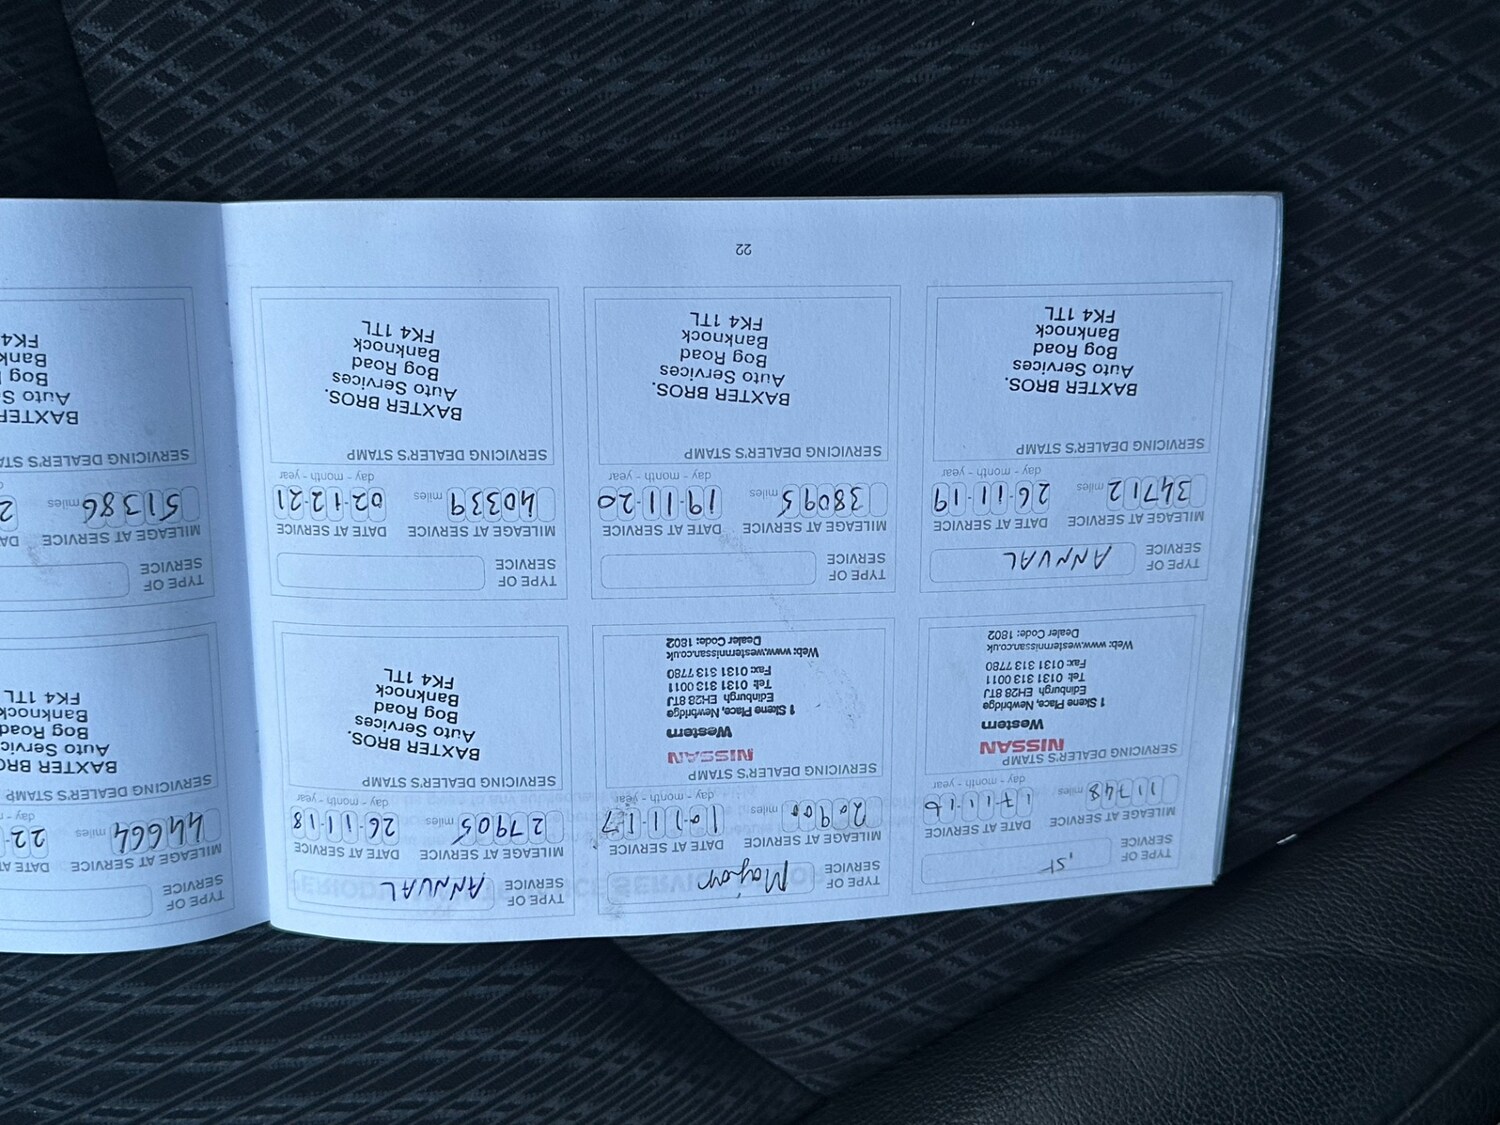 TYPE OF
SERVICE
1ST
MILEAGE AT SERVICE
DATE AT SERVICE
11748 miles
17.11.16
day - month - year
SERVICING DEALER'S STAMP
NISSAN
Western
1 Skene Place, Newbridge
Edinburgh EH28 8TJ
Tel: 0131 313 0011
Fax: 0131 313 7780
Web: www.westernnissan.co.uk
Dealer Code: 1802
TYPE OF
SERVICE
Major
MILEAGE AT SERVICE
DATE AT SERVICE
20900 miles
10.11.17
day - month - year
SERVICING DEALER'S STAMP
NISSAN
Western
1 Skene Place, Newbridge
Edinburgh EH28 8TJ
Tel: 0131 313 0011
Fax: 0131 313 7780
Web: www.westernnissan.co.uk
Dealer Code: 1802
TYPE OF
SERVICE
ANNUAL
MILEAGE AT SERVICE
DATE AT SERVICE
27905 miles
26.11.18
day - month - year
SERVICING DEALER'S STAMP
BAXTER BROS.
Auto Services
Bog Road
Banknock
FK4 1TL
TYPE OF
SERVICE
ANNUAL
MILEAGE AT SERVICE
DATE AT SERVICE
34712 miles
26.11.19
day - month - year
SERVICING DEALER'S STAMP
BAXTER BROS.
Auto Services
Bog Road
Banknock
FK4 1TL
TYPE OF
SERVICE
MILEAGE AT SERVICE
DATE AT SERVICE
38095 miles
19.11.20
day - month - year
SERVICING DEALER'S STAMP
BAXTER BROS.
Auto Services
Bog Road
Banknock
FK4 1TL
TYPE OF
SERVICE
MILEAGE AT SERVICE
DATE AT SERVICE
40339 miles
02.12.21
day - month - year
SERVICING DEALER'S STAMP
BAXTER BROS.
Auto Services
Bog Road
Banknock
FK4 1TL
22
TYPE OF
SERVICE
MILEAGE AT SERVICE
DATE AT
44664 miles
22
day -
SERVICING DEALER'S STAMP
BAXTER BRO
Auto Servic
Bog Road
Banknock
FK4 1TL
TYPE OF
SERVICE
MILEAGE AT SERVICE
DA
51386 miles
2
SERVICING DEALER'S STA
BAXTER
Auto
Bog
Bank
FK4